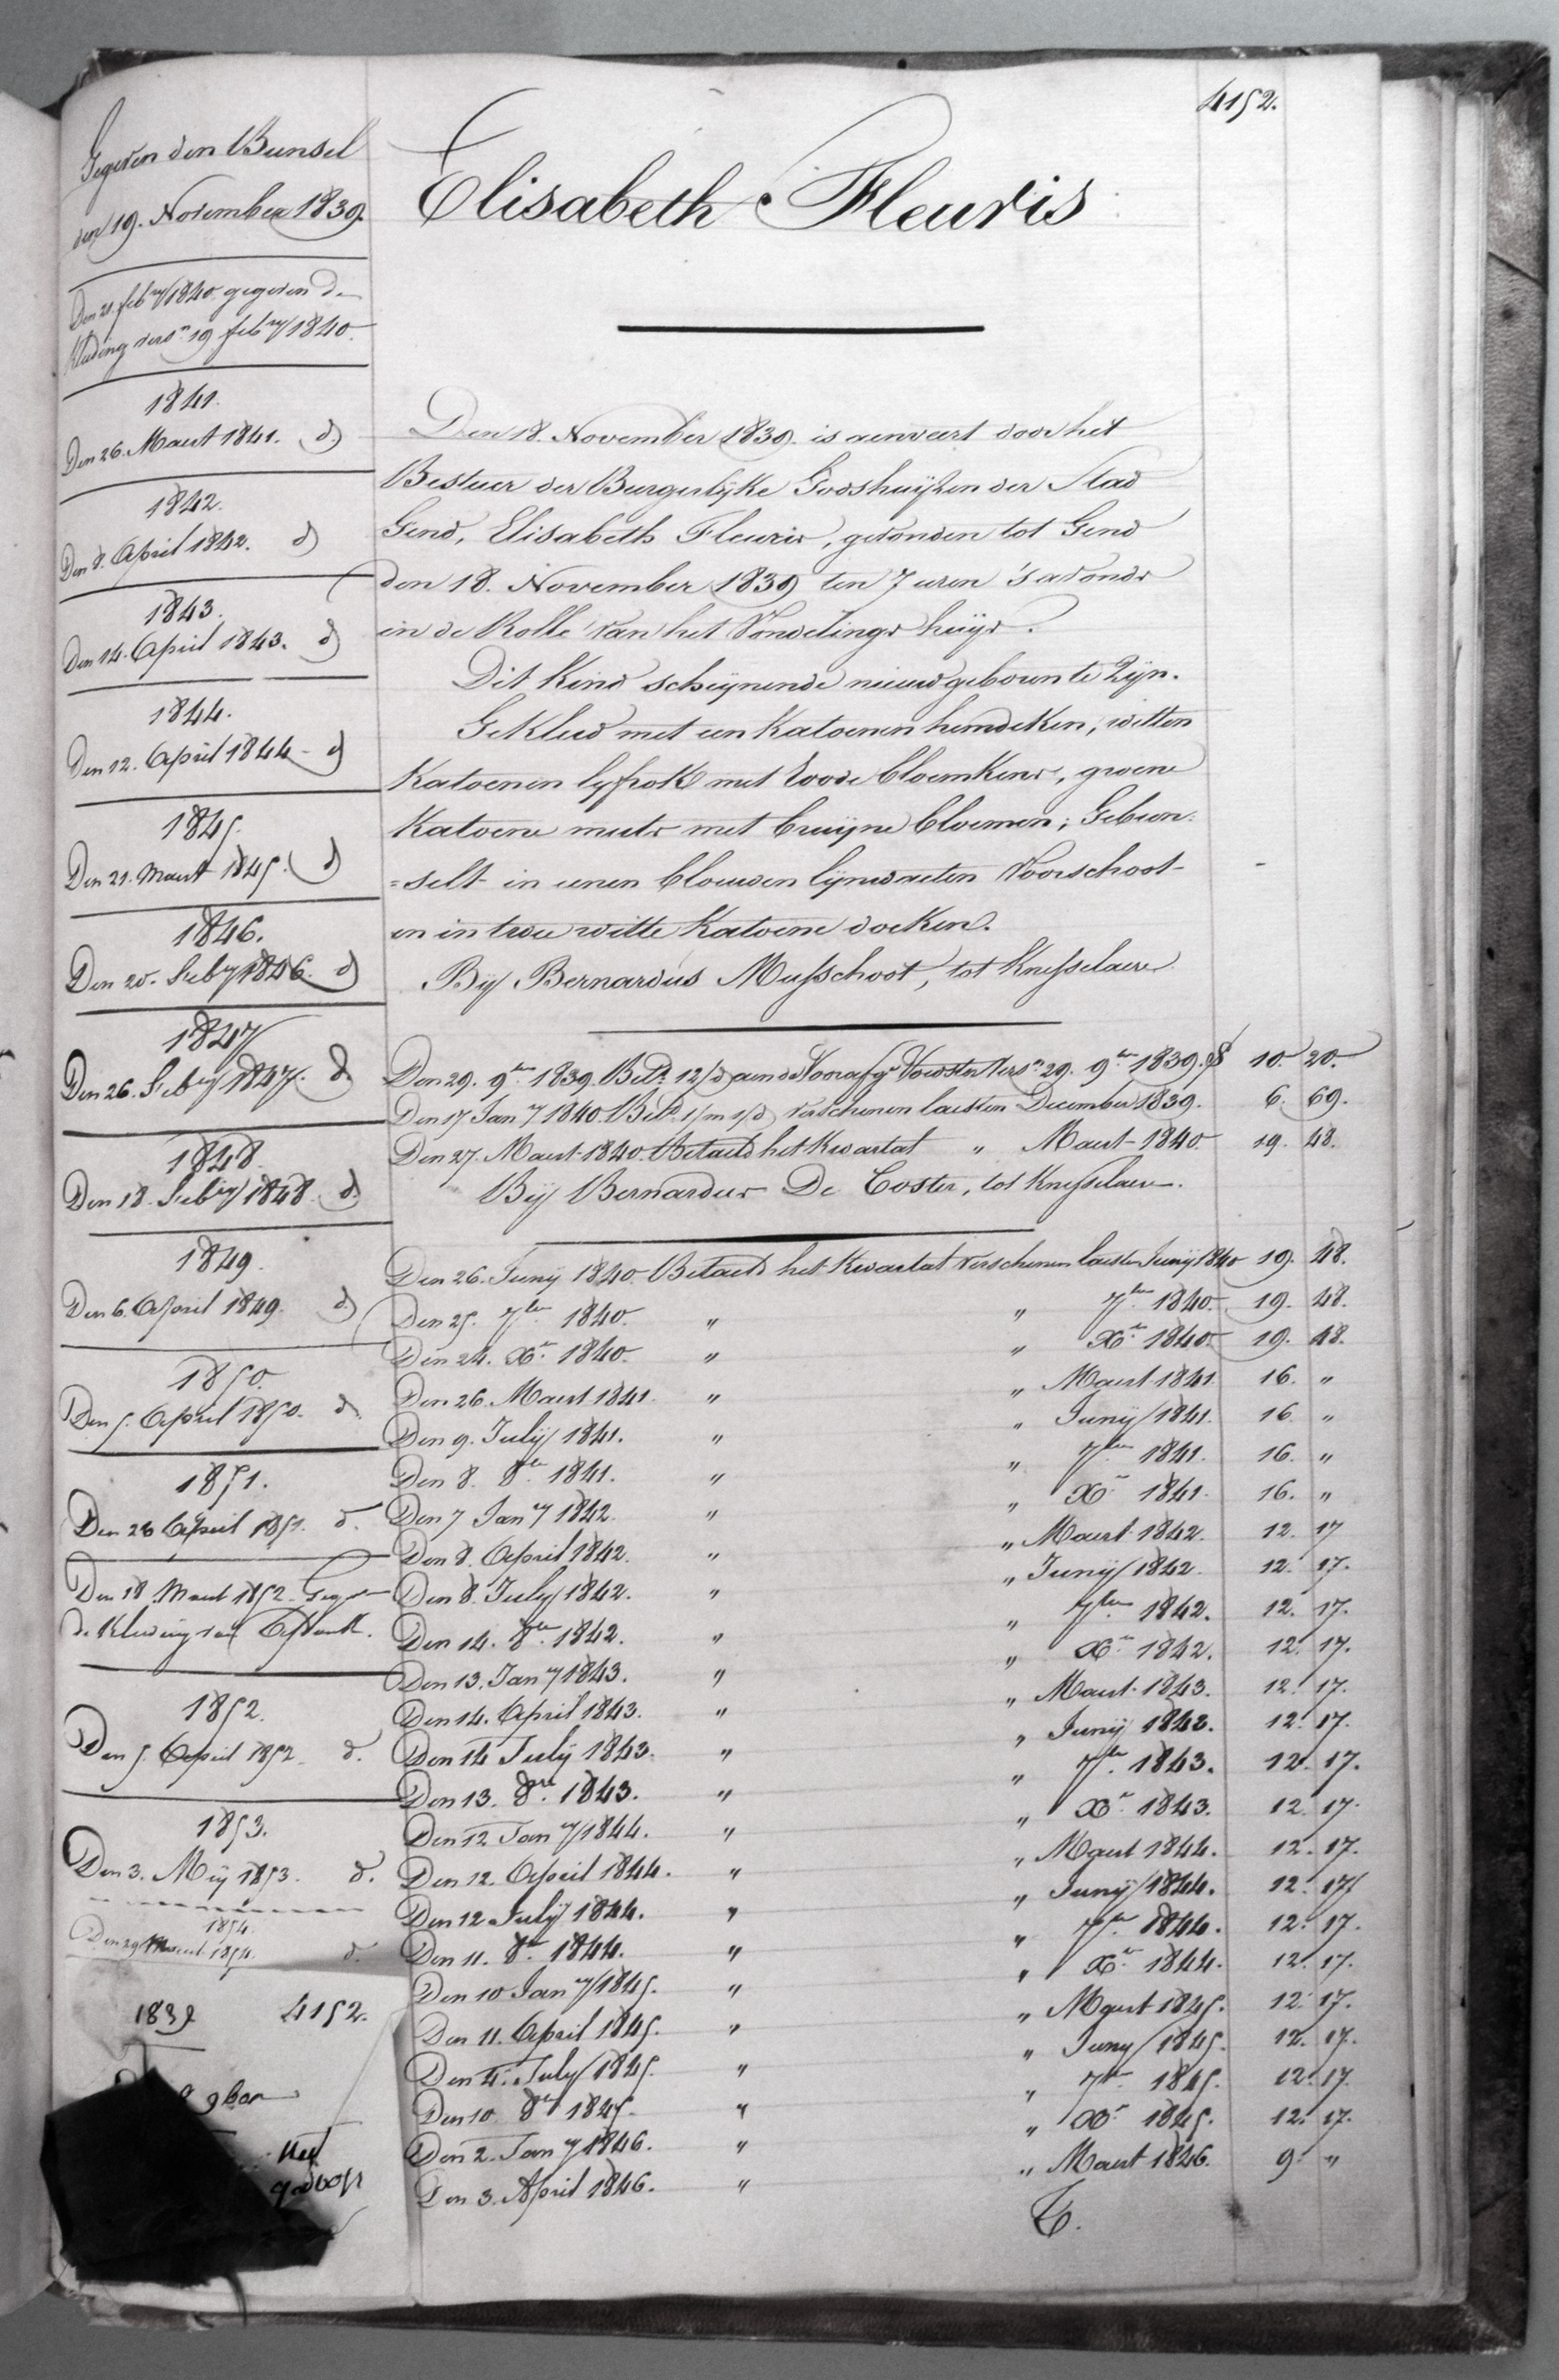 4152.
Elisabeth Fleuris
Gegeven den Bunsel
den 19. November 1839.
Den 21. feb.ry 1840 gegeven de
kleding vers.n 19 feb.ry 1840.
1841.
Den 26. Maert 1841. d)
1842.
Den 8. April 1842. d)
1843.
Den 14. April 1843. d)
1844.
Den 12. April 1844 - d)
1845.
Den 21. Maert 1845. d)
1846.
Den 20. Feb.ry 1846. d)
1847
Den 26. Feb.ry 1847. d.
1848.
Den 18. Feb.ry 1848. d.
1849.
Den 6. April 1849. d.)
1850.
Den 5. April 1850. d.
1851.
Den 26 April 1851. d.
Den 18 Maert 1852. Geg.
de Kleding van
1852.
Den 5. April 1852. d.
1853.
Den 3. Meÿ 1853. d.
1854.
Den 29 Maert 1854. d.
1839 4152.
9ber
Den 18. November 1839. is aenveert door het
Bestuer der Burgerlijke Godshuijzen der Stad
Gend, Elisabeth Fleuris, gevonden tot Gend
den 18. November 1839 ten 7 uren 's avonds
in de Rolle van het Vondelings huijs.
Dit Kind scheijnende nieuwgeboren te Zijn.
Gekleed met een Katoenen hemdeken, witten
Katoenen lyfrok met roode bloemkens, groene
Katoene muts met bruijne bloemen; Gebun-
=selt in eenen blauwen lijnwaeten Voorschoot
en in twee witte Katoene doeken.
Bij Bernardus Musschoot, tot Knesselaere
Den 29. 9.ber 1839. Bet.d 12/d aen de Voorafg.e Voedster vers.n 29. 9.ber 1839. 10. 20.
Den 17 Jan.ry 1840. Bet.d 1/m 1/d verschenen laesten December 1839. 6. 69.
Den 27. Maert 1840. Betaeld het Kwartat " Maert 1840 19. 48.
Bij Bernardus De Coster, tot Knesselaere.
Den 26. Junij 1840. Betaeld het Kwartat verschenen laesten Junij 1840 19. 48.
Den 25. 7.ber 1840. " " 7.ber 1840. 19. 48.
Den 24. X.r 1840. " " X.r 1840. 19. 48.
Den 26. Maert 1841. " " Maert 1841. 16. "
Den 9. Julij 1841. " " Junij 1841. 16. "
Den 8. 8.ber 1841. " " 7.ber 1841. 16. "
Den 7 Jan.ry 1842. " " X.r 1841. 16. "
Den 8. April 1842. " " Maert 1842. 12. 17
Den 8. July 1842. " " Junij 1842. 12. 17.
Den 14. 8.ber 1842. " " 7.ber 1842. 12. 17.
Den 13. Jan.ry 1843. " " X.r 1842. 12. 17.
Den 14. April 1843. " " Maert 1843. 12. 17.
Den 14 Julij 1843. " " Junij 1843. 12. 17.
Den 13. 8.re 1843. " " 7.ber 1843. 12. 17.
Den 12 Jan.ry 1844. " " X.r 1843. 12. 17.
Den 12. April 1844. " " Maert 1844. 12. 17.
Den 12 Julij 1844. " " Junij 1844. 12. 17.
Den 11. 8.re 1844. " " 7.ber 1844. 12. 17.
Den 10 Jan.ry 1845. " " X.r 1844. 12. 17.
Den 11. April 1845. " " Maert 1845. 12. 17.
Den 4. July 1845. " " Juny 1845. 12. 17.
Den 10 8.re 1845. " " 7.ber 1845. 12. 17.
Den 2. Jan.ry 1846. " " X.r 1845. 12. 17.
Den 3. April 1846. " " Maert 1846. 9. "